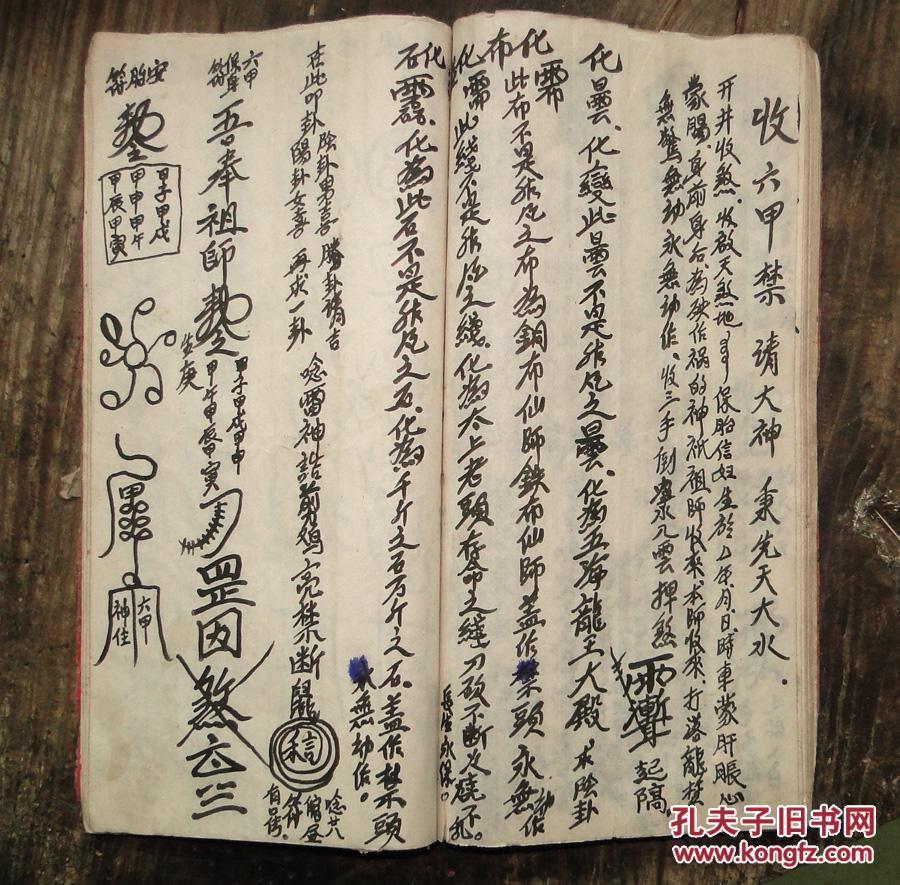 收六甲禁 请大神 秉先天大水.
开井收煞、收啟天煞地 保胎信妇生於 年 月 日 時車蒙肝脹心
蒙腸、身前身后、為殃作祸的神祇祖師收來、本師收來、打落能
無驚無动永無动作、收三手倒 水几雲押煞 起隔.
化曇、化變此曇不是非凡之曇、化為五海龍王大殿、求陰卦
化
布 此布不是非凡之布為銅布仙師鉄布仙師盖作禁頭永無动作
化 此綫不是非凡之綫、化為太上老頭 命之綫刀砍不断火燒不 。
長生永保。
化
石 化為此石不是非凡之石、化為千斤之石万斤之石、盖作禁頭
永無动作。
在此叩卦 陰卦男喜 陽卦女喜 勝卦 吉 再求一卦 唸雷神誥剪鸡亮禁断
稿
唸廿八
宿 符 有口传。
六甲保身符
吾奉祖師 甲子甲戌甲申甲午甲辰甲寅 罡 煞
生庚
安胎符
甲子甲戌甲申甲午甲辰甲寅
六甲神住
孔夫子旧书网
www.kongfz.com